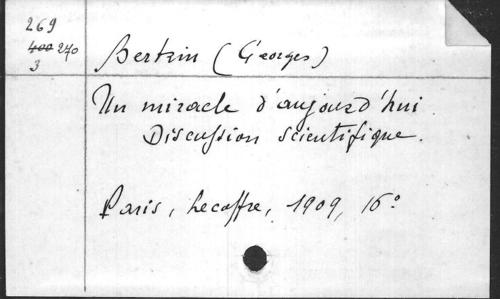 269
400 270
3
Bertrin (Georges)
Un miracle d'aujourd'hui
Discussion scientifique.
Paris, Lecoffre, 1909, 16°